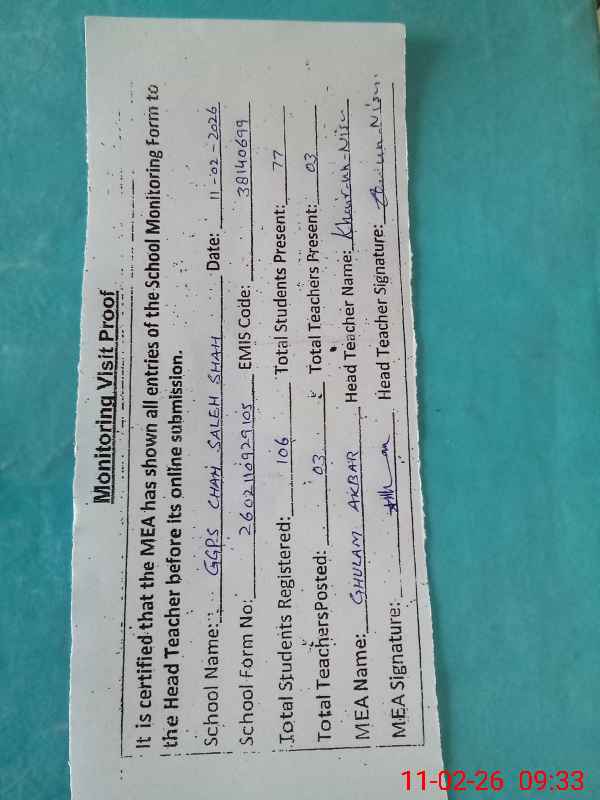 Monitoring Visit Proof
It is certified that the MEA has shown all entries of the School Monitoring Form to
the Head Teacher before its online submission.
School Name: GGPS CHAH SALEH SHAH Date: 11-02-2026
School Form No: 2602110929105 EMIS Code: 38140699
Total Students Registered: 106 Total Students Present: 77
Total TeachersPosted: 03 Total Teachers Present: 03
MEA Name: GHULAM AKBAR Head Teacher Name: Khair-un-Nisa
MEA Signature: Head Teacher Signature:
11-02-26 09:33